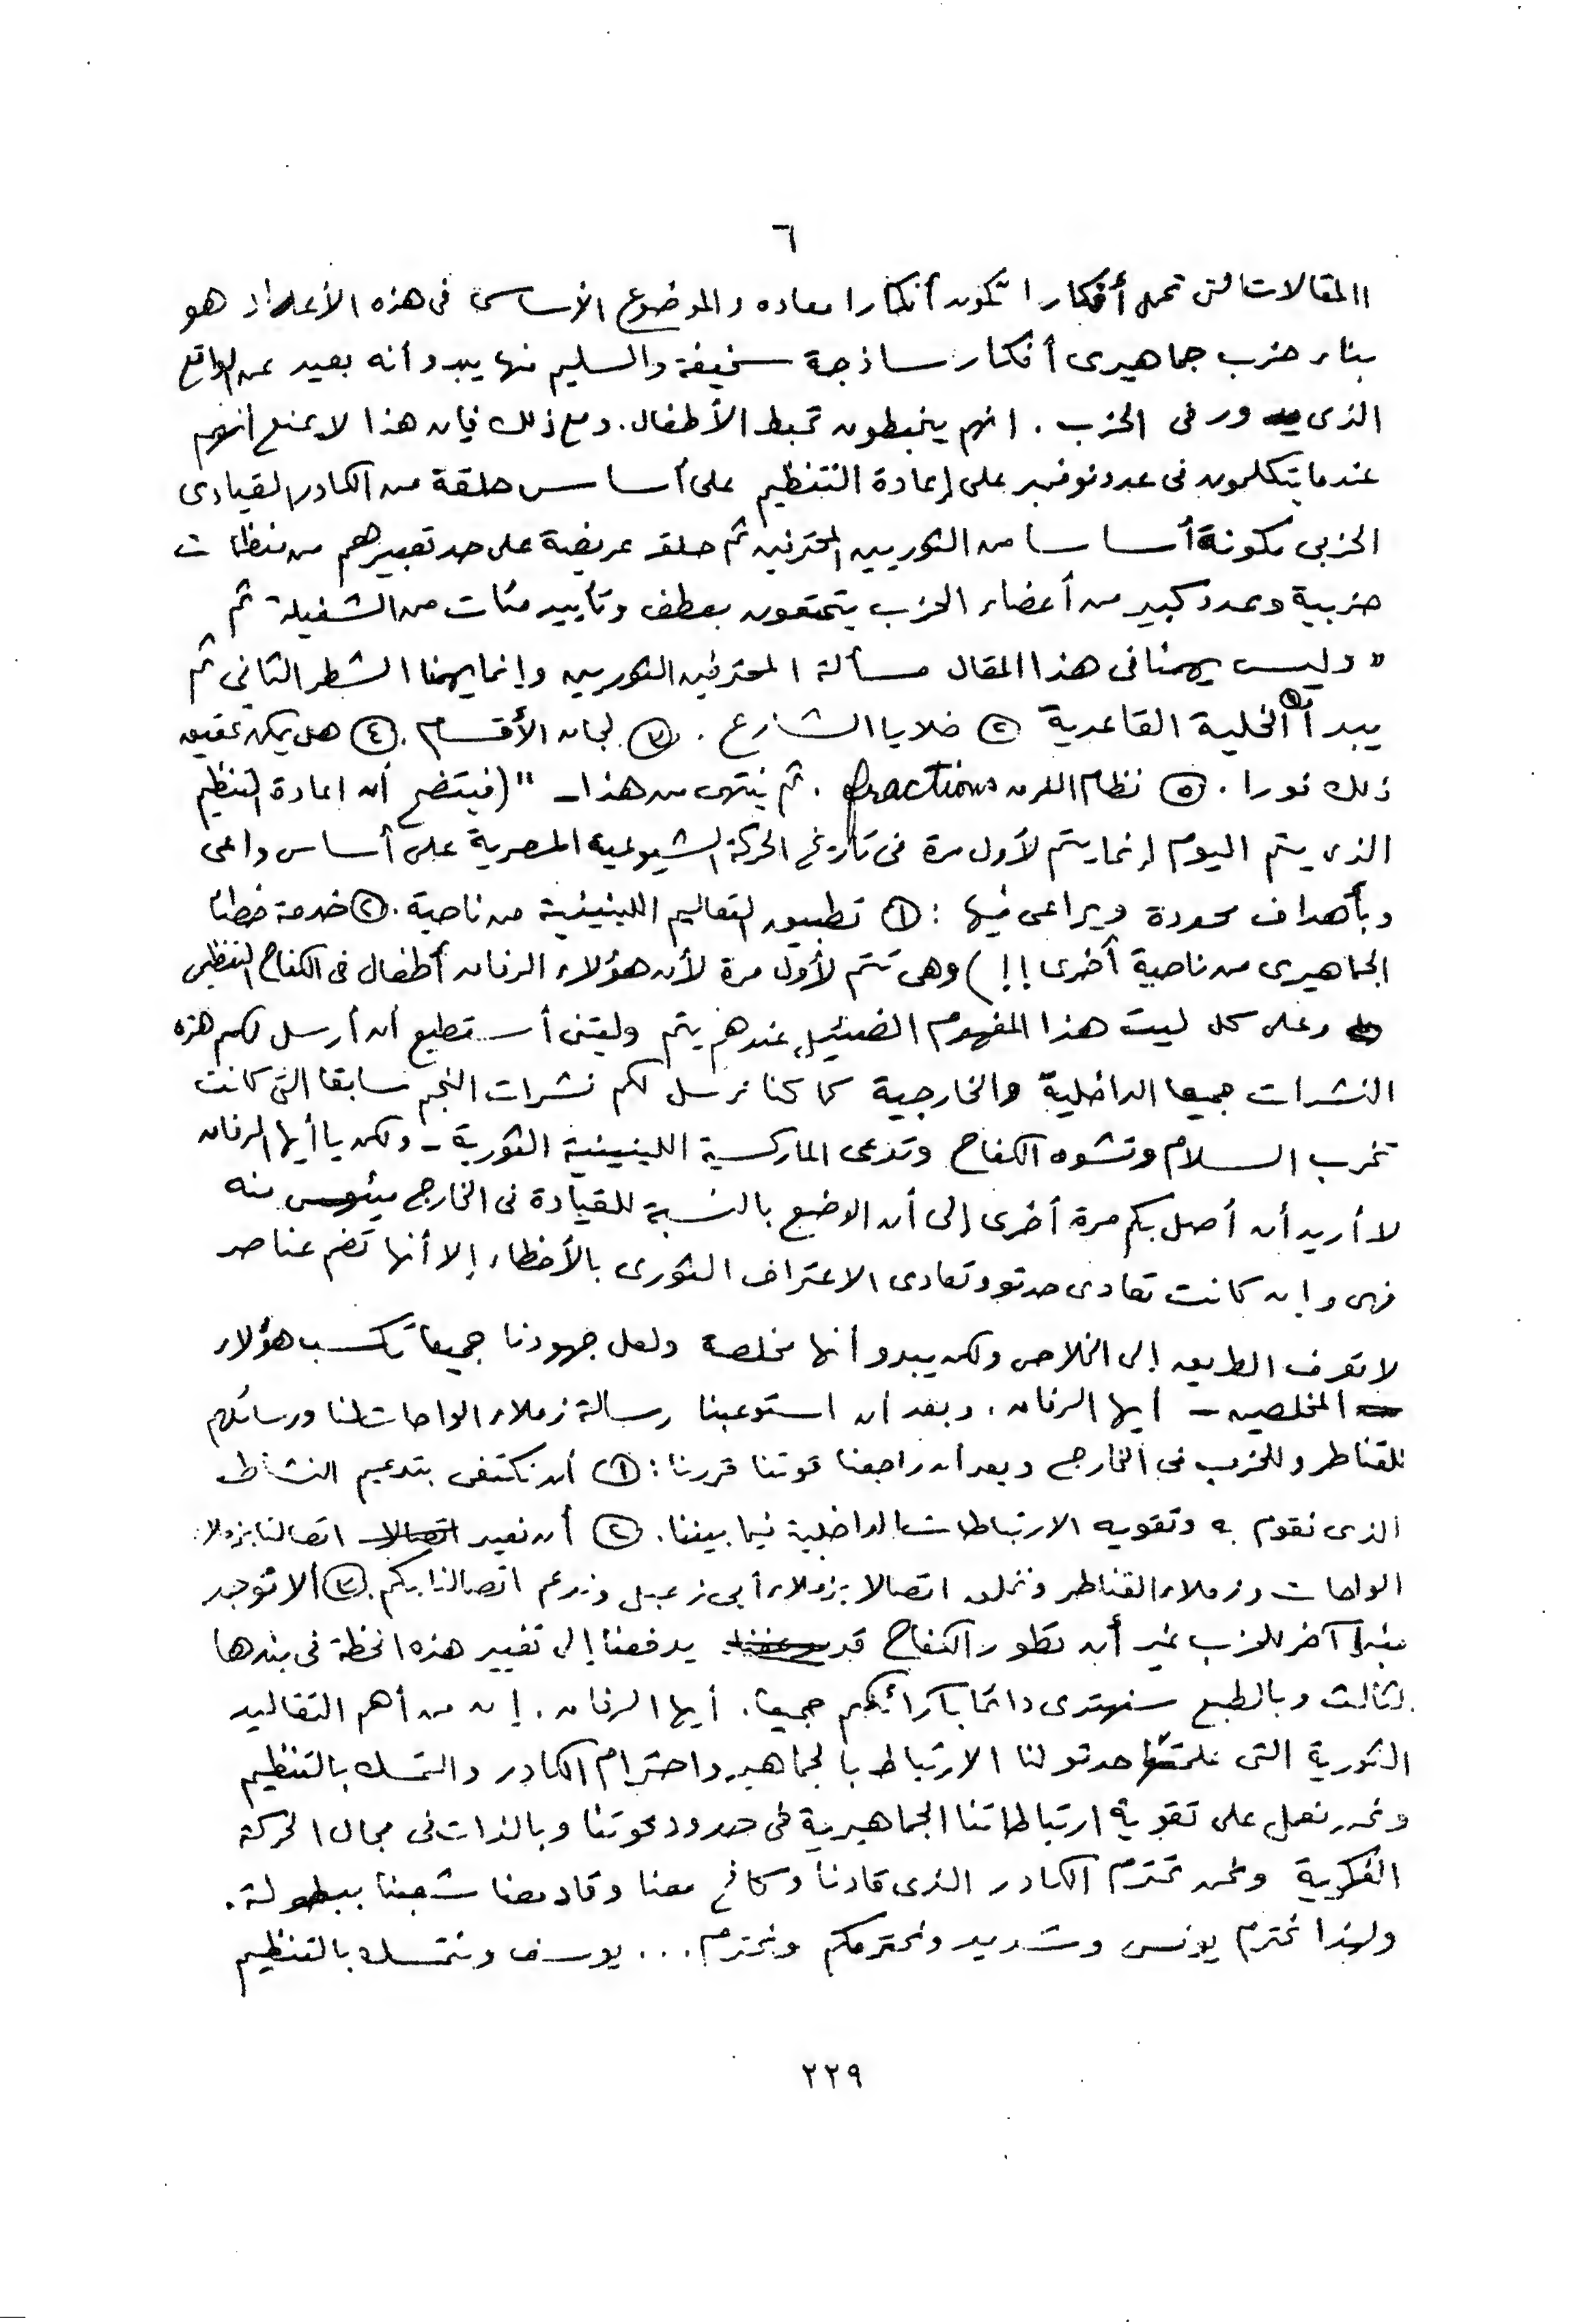 ٦
المقالات التى تحمل أفكارا تكون أفكارا معاده والموضوع الأساسى فى هذه الأعداد هو
بناء حزب جماهيرى أفكار ساذجة سخيفة والسليم منها يبدو أنه بعيد عن الواقع
الذى يدور فى الحزب . انهم يتخبطون تخبط الأطفال . ومع ذلك فإن هذا لا يمنع انهم
عندما يتكلمون فى عدد نوفمبر على إعادة التنظيم على أساس حلقة من الكادر القيادى
الحزبى مكونة أساسا من الثوريين المحترفين ثم حلقة عريضة على حد تعبيرهم من منظمات
حزبية وعدد كبير من أعضاء الحزب يتمتعون بعطف وتأييد مئات من الشغيلة ثم
" وليس يهمنا فى هذا المقال مسألة المحترفين الثوريين وإنما يهمنا الشطر الثانى ثم
يبدأ ① الخلية القاعدية ② خلايا الشارع . ③ لجان الأقسام . ④ هل يمكن تحقيق
ذلك فورا . ⑤ نظام الـ fractions . ثم ينتهى من هذا - " (فيتضح أن اعادة التنظيم
الذى يتم اليوم إنما يتم لأول مرة فى تاريخ الحركة الشيوعية المصرية على أساس واعى
وبأهداف محددة ويراعى فيها : ① تطبيق التعاليم اللينينية من ناحية . ② خدمة خطنا
الجماهيرى من ناحية أخرى !! ) وهى تتم لأول مرة لأن هؤلاء الرفاق أطفال فى الكفاح التنظيمى
وعلى كل ليت هذا المفهوم الضئيل عندهم يتم وليتنى أستطيع أن أرسل لكم هذه
النشرات جميعا الداخلية والخارجية كما كنا نرسل لكم نشرات النجم سابقا التى كانت
تخرب السلام وتشوه الكفاح وتدعى الماركسية اللينينية الثورية - ولكن يا أيها الرفاق
لا أريد أن أصل بكم مرة أخرى إلى أن الوضع بالنسبة للقيادة فى الخارج ميئوس منه
فهى وإن كانت تعادى حدتو وتعادى الاعتراف الثورى بالأخطاء إلا أنها تضم عناصر
لا تعرف الطريق إلى الخلاص ولكن يبدو أنها مخلصة ولعل جهودنا جميعا تكسب هؤلاء
المخلصين - أيها الرفاق . وبعد أن استوعبنا رسالة زملاء الواحات لنا ورسائلهم
للقناطر وللحزب فى الخارج وبعد أن راجعنا قوتنا قررنا : ① أن نكتفى بتدعيم النشاط
الذى نقوم به وتقوية الارتباطات الداخلية فيما بيننا . ② أن نعيد اتصالنا بزملاء
الواحات وزملاء القناطر ونخلق اتصالا بزملاء أبى زعبل وندعم اتصالنا بكم . ③ ألا نوجد
منبرا آخر للحزب غير أن تطور الكفاح قد يدفعنا إلى تغيير هذه الخطة فى بندها
الثالث وبالطبع سنهتدى دائما بآرائكم جميعا . أيها الرفاق . إن من أهم التقاليد
الثورية التى علمتها حدتو لنا الارتباط بالجماهير واحترام الكادر والتمسك بالتنظيم
ونحن نعمل على تقوية ارتباطاتنا الجماهيرية فى حدود قوتنا وبالذات فى مجال الحركة
الفكرية ونحن نحترم الكادر الذى قادنا وكافح معنا وقاد معنا شعبنا ببطولة .
ولهذا نحترم يونس وشديد ونحترمكم ونحترم ... يوسف ونتمسك بالتنظيم
٢٢٩